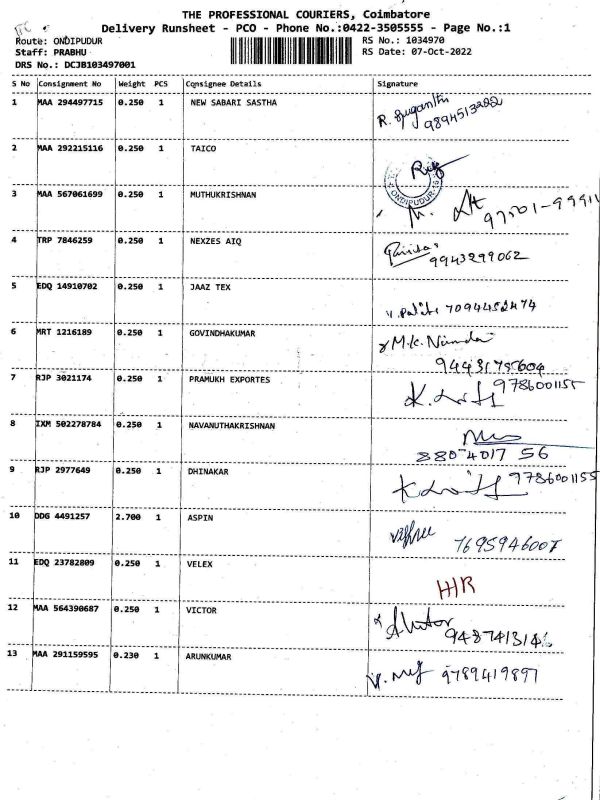 THE PROFESSIONAL COURIERS, Coimbatore
Delivery Runsheet - PCO - Phone No.:0422-3505555 - Page No.:1
Route: ONDIPUDUR
RS No.: 1034970
Staff: PRABHU
RS Date: 07-Oct-2022
DRS No.: DCJB103497001
S No Consignment No Weight PCS Consignee Details Signature
1 MAA 294497715 0.250 1 NEW SABARI SASTHA R. Suganthi
9894513222
2 MAA 292215116 0.250 1 TAICO
ONDIPUDUR
3 MAA 567061699 0.250 1 MUTHUKRISHNAN
4 TRP 7846259 0.250 1 NEXZES AIQ
9943299062
5 EDQ 14910702 0.250 1 JAAZ TEX
7094452474
6 MRT 1216189 0.250 1 GOVINDHAKUMAR M.K. Nanda
9443175604
7 RJP 3021174 0.250 1 PRAMUKH EXPORTES 9786001155
8 IXM 502278784 0.250 1 NAVANUTHAKRISHNAN
8804017 56
9 RJP 2977649 0.250 1 DHINAKAR 9786001155
10 DDG 4491257 2.700 1 ASPIN
7695946007
11 EDQ 23782809 0.250 1 VELEX
H/R
12 MAA 564390687 0.250 1 VICTOR
9487413146
13 MAA 291159595 0.230 1 ARUNKUMAR
9789419897